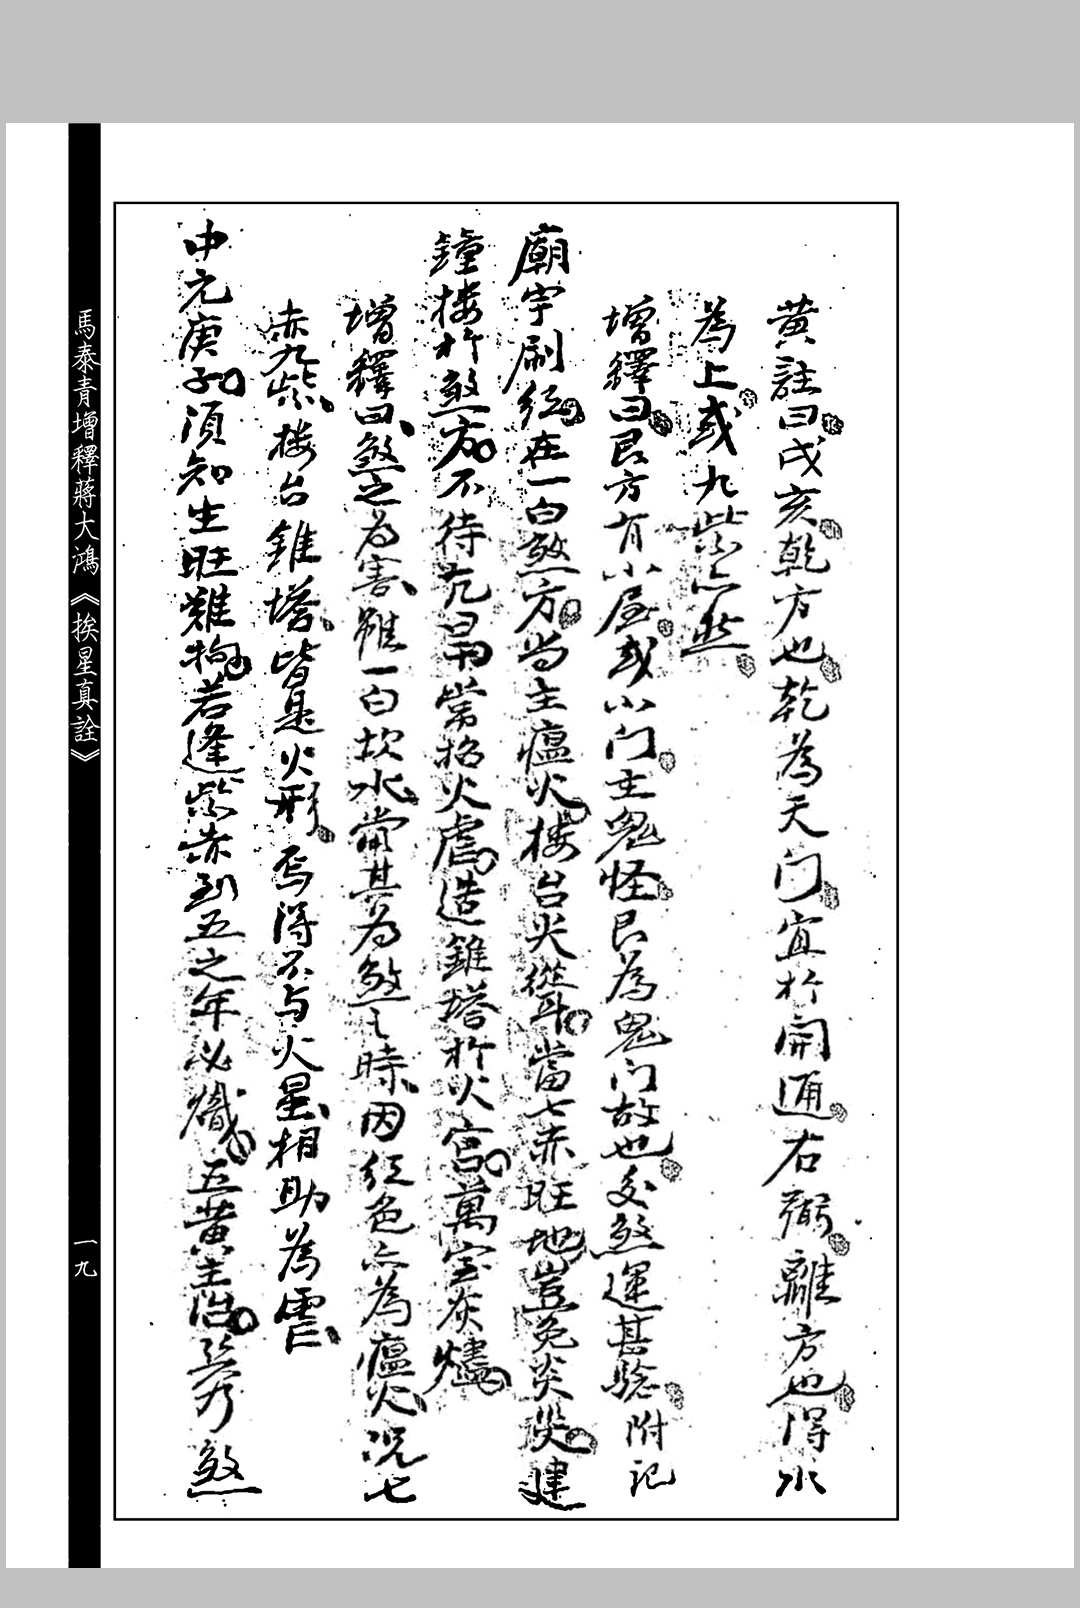 黄註曰戌亥乾方也乾為天门宜於開通右弼離方也得水
為上或九紫亦然
增釋曰艮方有小屋或小门主鬼怪艮為鬼门故也交煞運甚驗附记
廟宇刷红在一白煞方尚主瘟火楼台尖聳當七赤旺地豈免炎災建
鐘楼於煞方不待九局常招火虐造錐塔於火宫萬室灰燼
增釋曰煞之为害雖一白坎水當其为煞之時因红色亦為瘟火况七
赤九紫楼台錐塔皆是火形焉得不与火星相助為虐
中元庚子須知生旺難拘若逢紫赤到五之年必熾五黄主
煞
馬泰青增釋蔣大鴻《挨星真詮》
一九